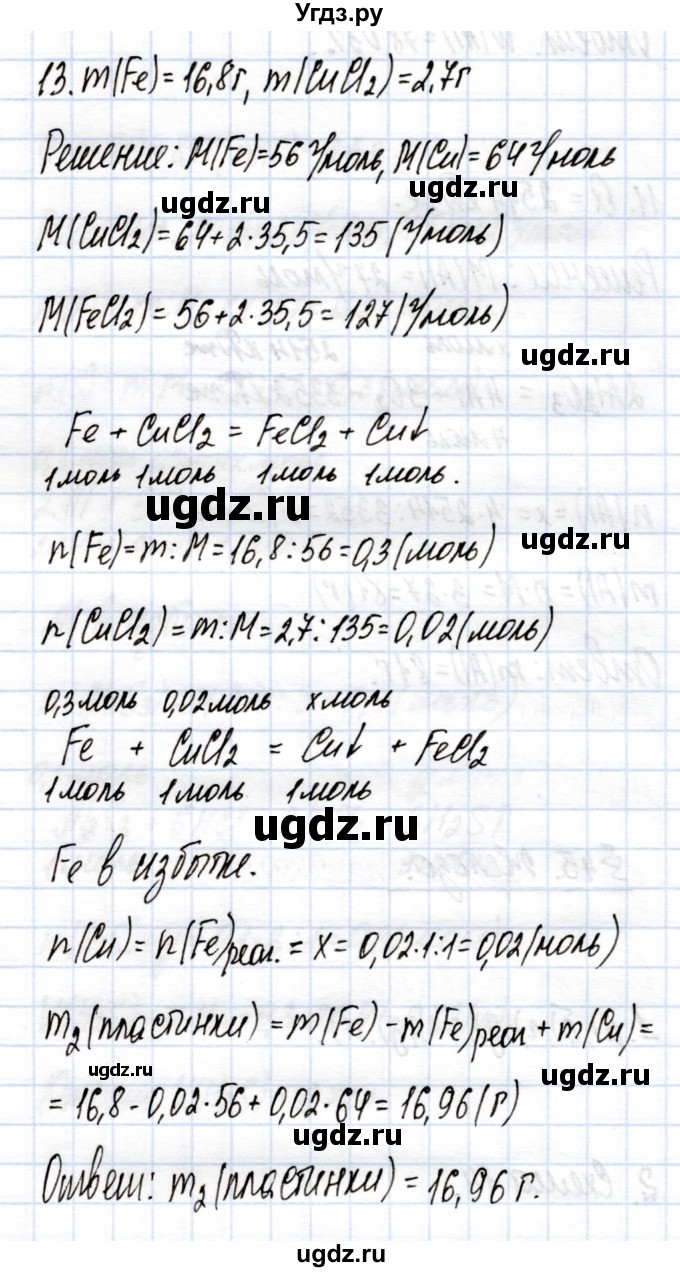 Угдз.ру
13. m(Fe)=16,8г, m(CuCl₂)=2,7г
Решение: M(Fe)=56 г/моль, M(Cu)=64 г/моль
ugdz.ru ugdz.ru
M(CuCl₂)=64+2·35,5=135(г/моль)
M(FeCl₂)=56+2·35,5=127(г/моль)
ugdz.ru
Fe + CuCl₂ = FeCl₂ + Cu↓
1моль 1моль 1моль 1моль.
ugdz.ru
n(Fe)=m:M=16,8:56=0,3(моль)
ugdz.ru
n(CuCl₂)=m:M=2,7:135=0,02(моль)
0,3моль 0,02моль xмоль
Fe + CuCl₂ = Cu↓ + FeCl₂
1моль 1моль 1моль
ugdz.ru
Fe в избытке.
n(Cu)=n(Fe)реаг.=x=0,02·1:1=0,02(моль)
m₂(пластинки)=m(Fe)-m(Fe)реаг+m(Cu)=
ugdz.ru ugdz.ru
=16,8-0,02·56+0,02·64=16,96(г)
ugdz.ru
Ответ: m₂(пластинки)=16,96г.
ugdz.ru
ugdz.ru